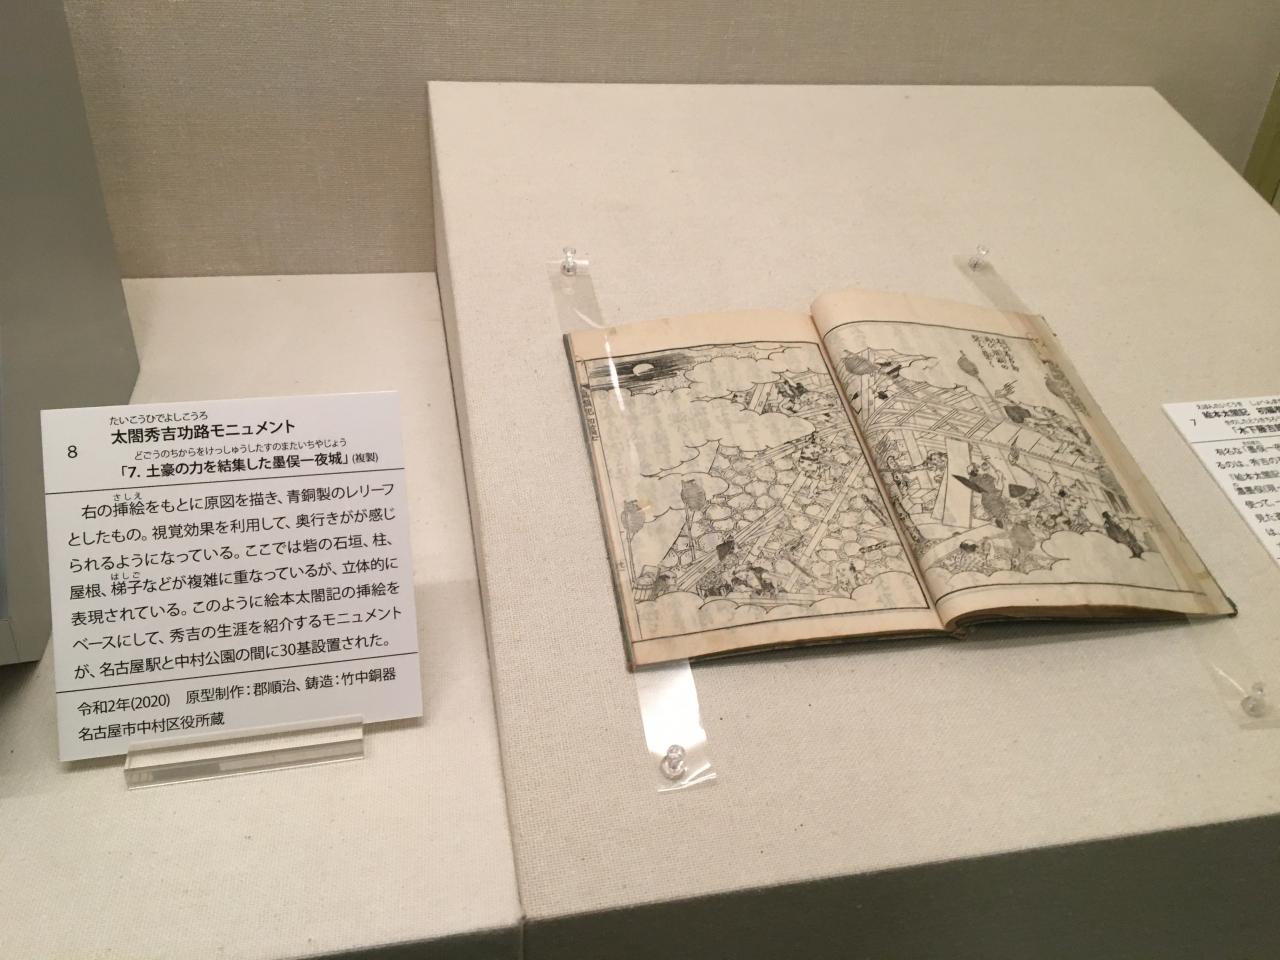 8
たいこうひでよしこうろ
太閤秀吉功路モニュメント
どごうのちからをけっしゅうしたすのまたいちやじょう
「7. 土豪の力を結集した墨俣一夜城」(複製)
さしえ
右の挿絵をもとに原図を描き、青銅製のレリーフ
としたもの。視覚効果を利用して、奥行きがが感じ
られるようになっている。ここでは砦の石垣、柱、
はしご
屋根、梯子などが複雑に重なっているが、立体的に
表現されている。このように絵本太閤記の挿絵を
ベースにして、秀吉の生涯を紹介するモニュメント
が、名古屋駅と中村公園の間に30基設置された。
令和2年(2020) 原型制作：郡順治、鋳造：竹中銅器
名古屋市中村区役所蔵
7
絵本太閤記 初編
「木下藤吉郎
有名な「墨俣一夜
るのは、秀吉の
『絵本太閤記
使って、一
見た
は、